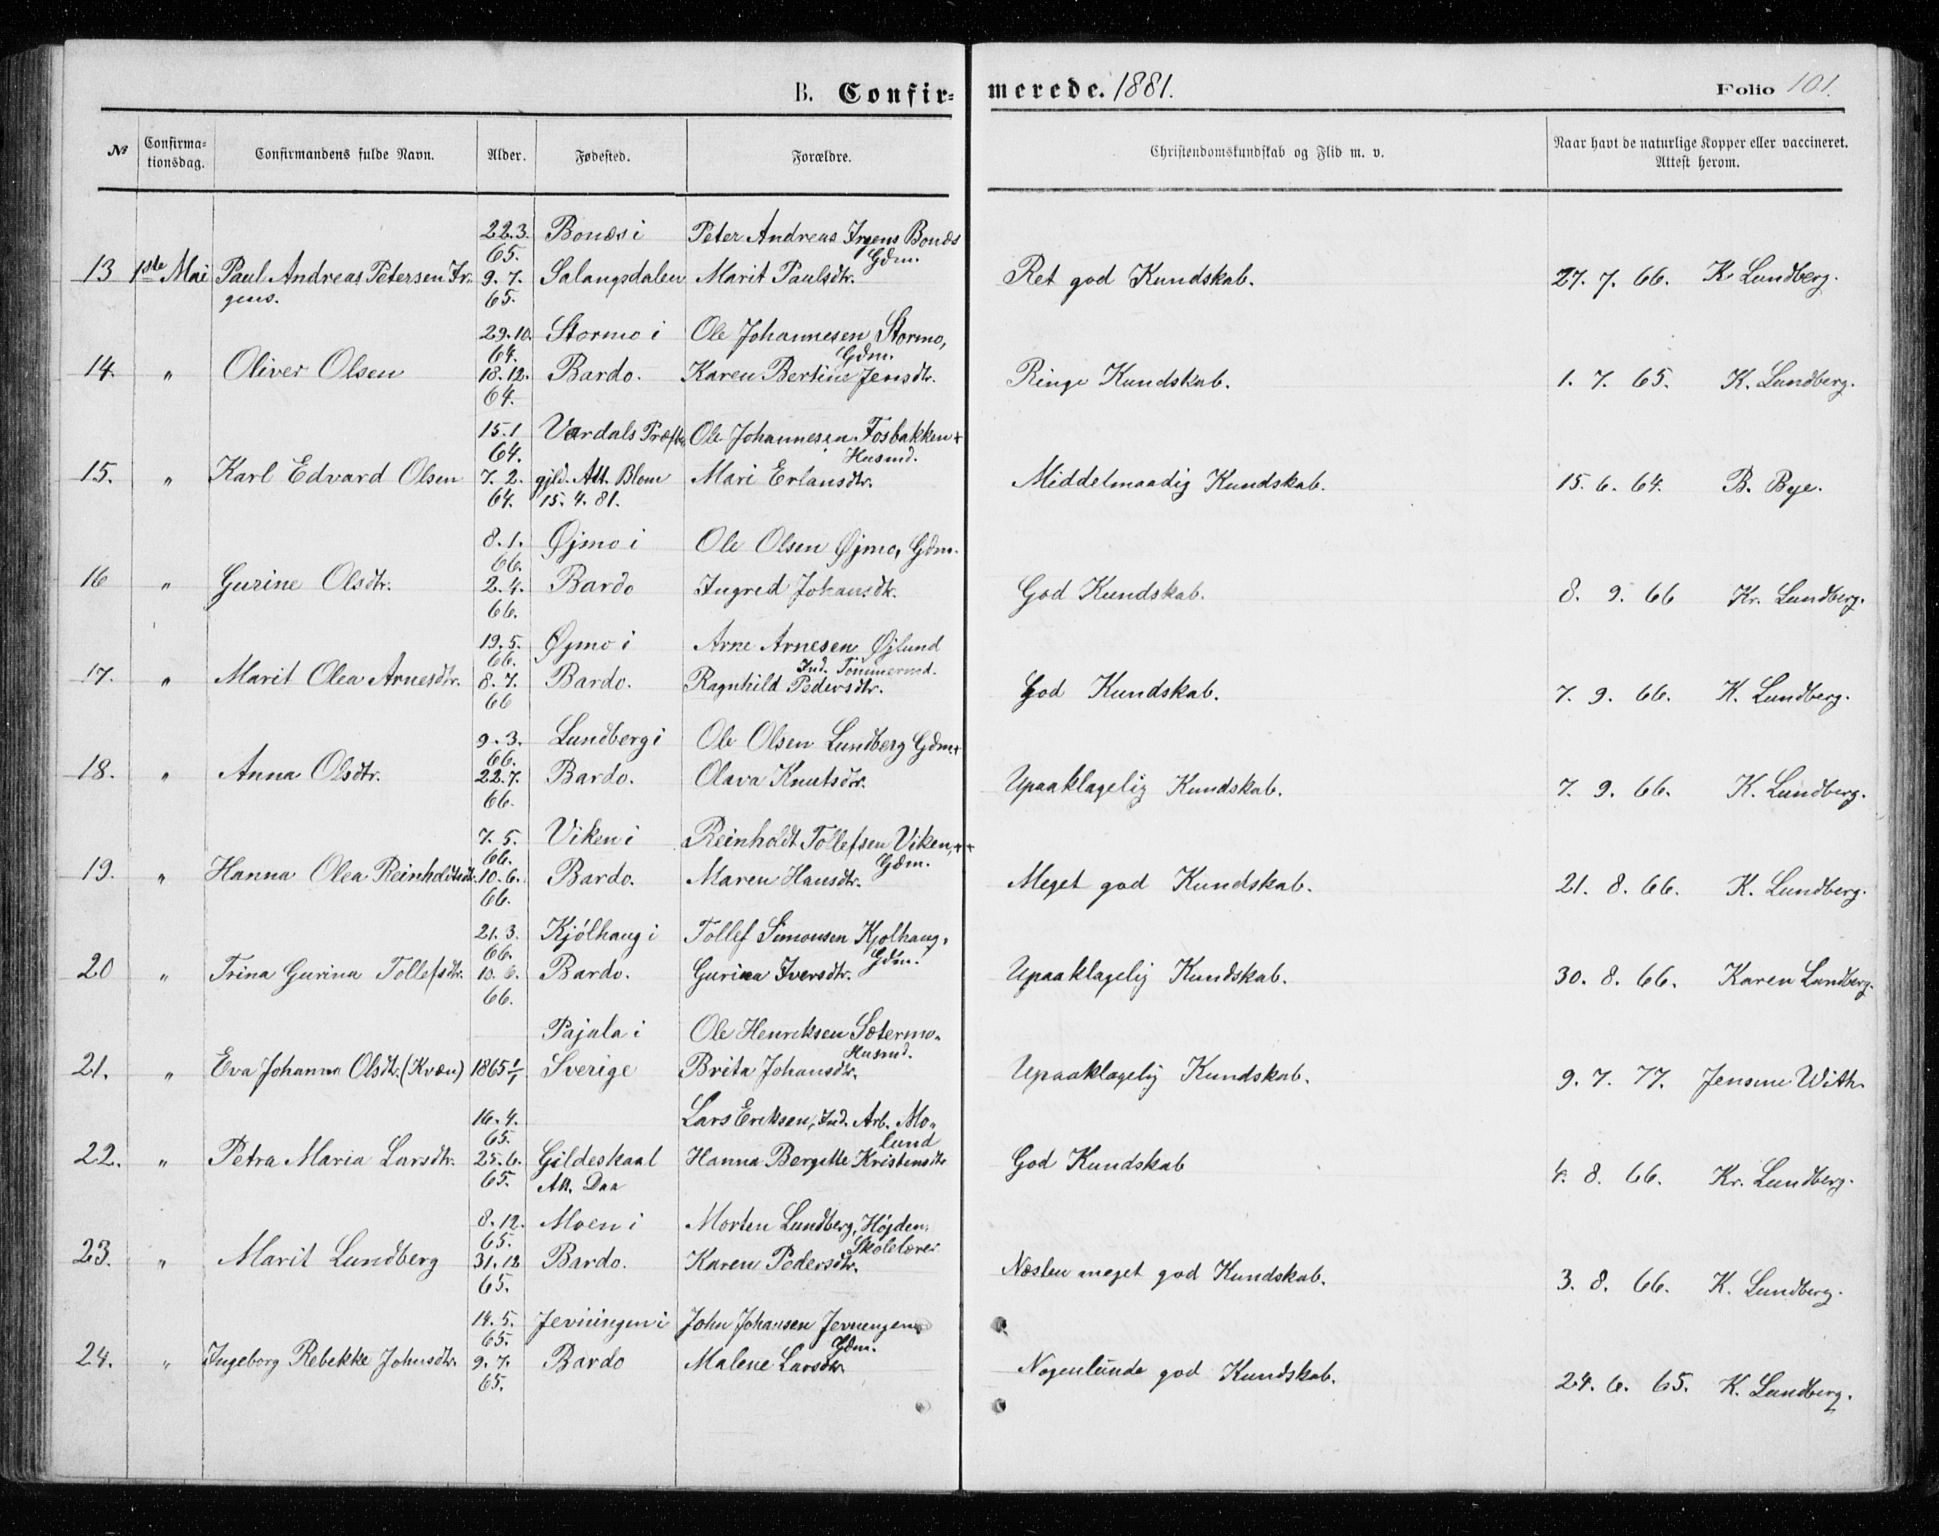 B. Confir= merede. 1881. Folio 101.
No Confirma-tionsdag. Confirmandens fulde Navn. Alder. Fødested. Forældre. Christendomskundskab og Flid m. v. Naar havt de naturlige Kopper eller vaccineret. Attest herom.
22.3. Bonæs i Peter Andreas Irgens Bonæs
65. Gdm.
13 1ste Mai Paul Andreas Petersen Ir- 9. 7. Salangsdalen Marit Paulsdtr. Ret god Kundskab. 27. 7. 66. K. Lundberg.
gens. 65.
29.10. Stormo i Ole Johannesen Stormo,
64. Gdm.
14. " Oliver Olsen 18.12. Bardo. Karen Bertine Jensdtr. Ringe Kundskab. 1. 7. 65. K. Lundberg.
64.
15.1 Vardals Præste Ole Johannesen Fosbakken +
64. Husmd.
15. " Karl Edvard Olsen 7. 2. gjld. Att. Blom Mari Erlansdtr. Middelmaadig Kundskab. 15. 6. 64. B. Bye.
64. 15. 4. 81.
8. 1. Øjmo i Ole Olsen Øjmo, Gdm.
66.
16 " Gurine Olsdtr. 2. 4. Bardo Ingred Johansdtr. God Kundskab. 8. 9. 66 Kr. Lundberg.
66.
19. 5. Øjmo i Arne Arnesen Øjlund
66. Ind. Tømmermd.
17. " Marit Olea Arnesdtr. 8. 7. Bardo. Ragnhild Pedersdtr. God Kundskab. 7. 9. 66. K. Lundberg.
66
9. 3. Lundberg i Ole Olsen Lundberg Gdm. +
66.
18. " Anna Olsdtr. 22.7. Bardo. Olava Knutsdtr. Upaaklagelig Kundskab. 7. 9. 66. K. Lundberg.
66.
7. 5. Viken i Reinholdt Tollefsen Viken, ++
66. Gdm.
19. " Hanna Olea Reinholdtsdtr. 10. 6. Bardo. Maren Hansdtr. Meget god Kundskab. 21. 8. 66. K. Lundberg.
66.
21. 3. Kjølhaug i Tollef Simonsen Kjølhaug,
66. Gdm.
20 " Trina Gurina Tollefsdtr. 10. 6. Bardo. Gurina Iversdtr. Upaaklagelig Kundskab. 30. 8. 66. Karen Lundberg.
66.
Pajala i Ole Henriksen Sætermo.
Husmd.
21. " Eva Johanna Olsdtr. (Kvæn) 1865 1/1 Sverige Brita Johansdtr. Upaaklagelig Kundskab. 9. 7. 77. Jensine With.
16. 4. Lars Eriksen, Ind. Arb. Mo-
65. lund
22. " Petra Maria Larsdtr. 25. 6. Gildeskaal Hanna Bergitte Kristensdtr God Kundskab 4. 8. 66. Kr. Lundberg.
65. Att. Daa
8. 12. Moen i Morten Lundberg, Højden,
65. Skolelærer
23. " Marit Lundberg 31. 12 Bardo. Karen Pedersdtr. Næsten meget god Kundskab. 3. 8. 66. K. Lundberg.
65.
14. 5. Jevningen i John Johansen Jevnengen,
65. Gdm.
24. " Ingeborg Rebekke Johnsdtr. 9. 7. Bardo Malene Larsdtr. Nogenlunde god Kundskab. 24. 6. 65. K. Lundberg.
65.